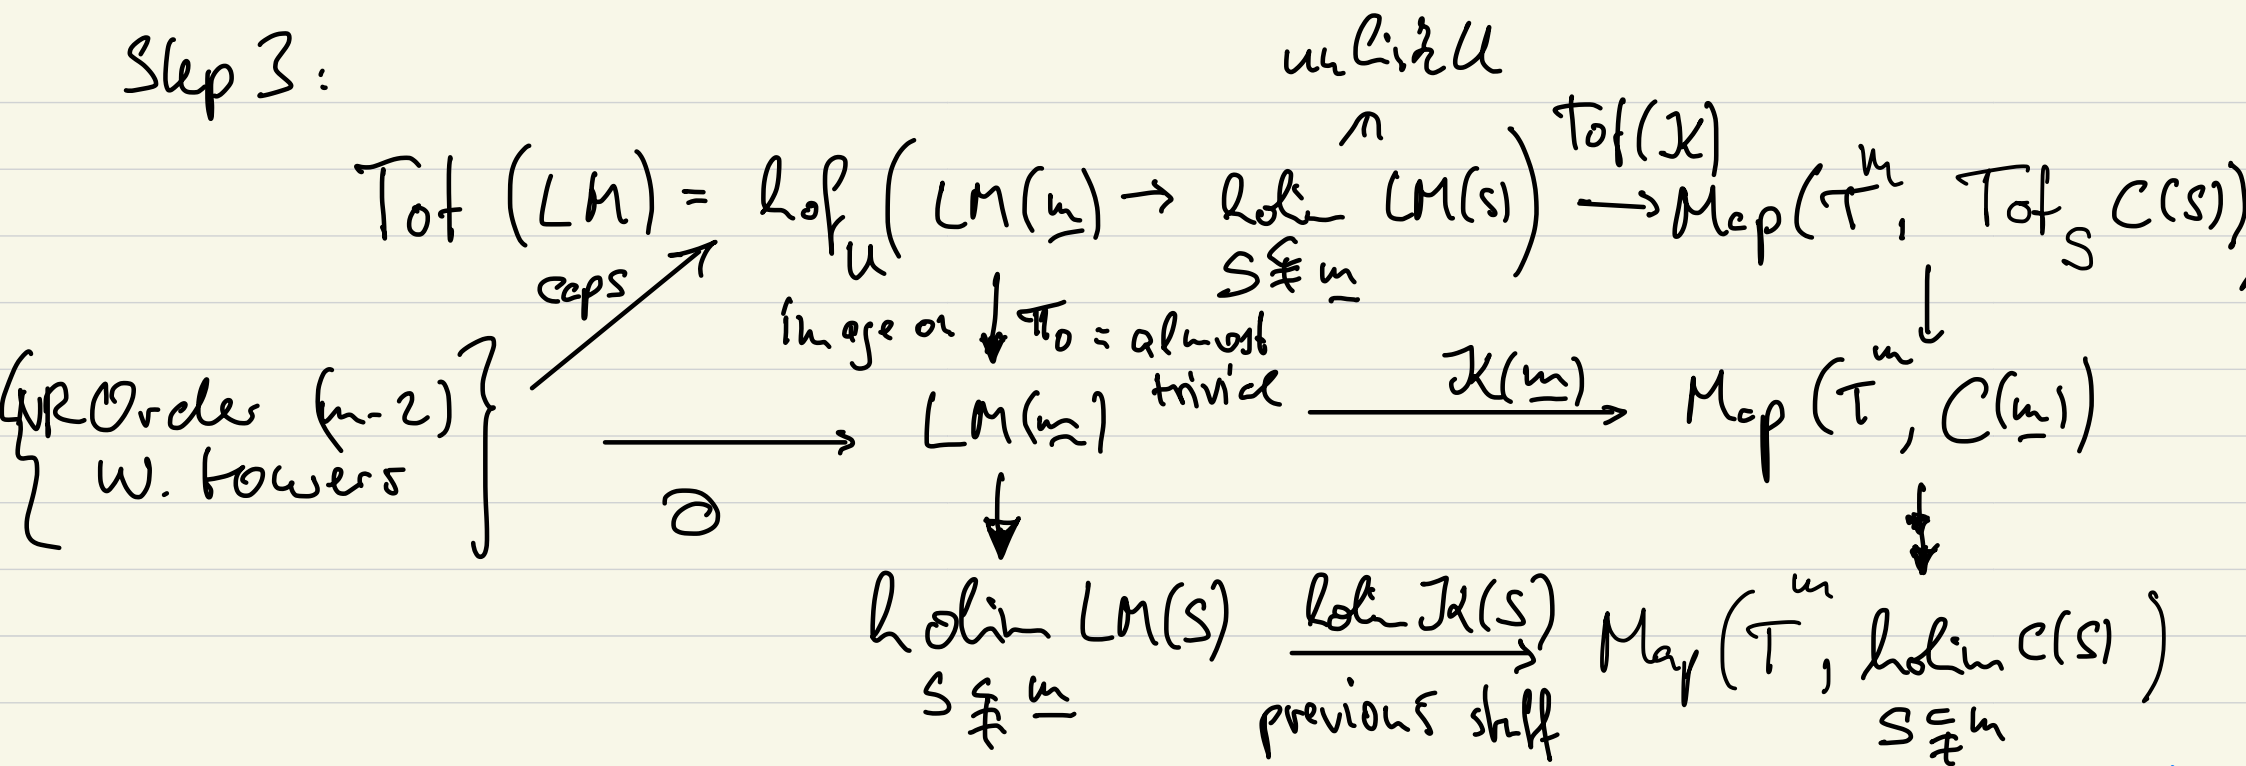 Step 3:
unlink U
∩
Tof (LM) = hof_U ( LM(m̲) → holim_{S⊊m̲} LM(S) ) —Tof(K)→ Map(T^m, Tof_S C(S))
caps
image on π₀ = almost trivial
{ (N)ROrder (m-2) w. towers } —∂→ LM(m̲) —K(m̲)→ Map(T^m, C(m̲))
holim_{S⊊m̲} LM(S) —holim K(S)→ Map(T^m, holim_{S⊊m} C(S))
previous stuff